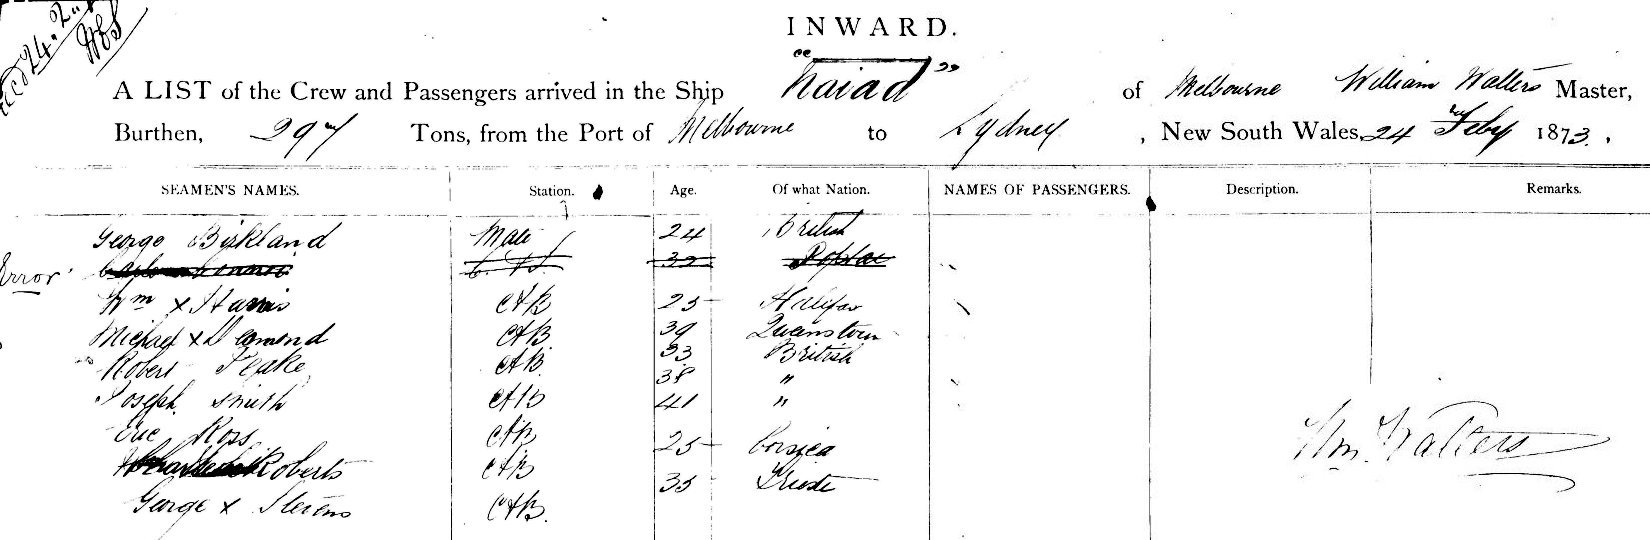 24.2
INWARD.
A LIST of the Crew and Passengers arrived in the Ship "Naiad" of Melbourne William Walters Master,
Burthen, 297 Tons, from the Port of Melbourne to Sydney, New South Wales, 24 Feby 1873.
SEAMEN'S NAMES. Station. Age. Of what Nation. NAMES OF PASSENGERS. Description. Remarks.
George Birkland Mate 24 British
Error
Wm x Harris AB 25 Halifax
Michael x Desmond AB 39 Queenstown
Robert Peake AB 33 British
Joseph Smith AB 38 "
Ross AB 41 "
Roberts AB 25 Corsica
George x Stevens AB. 35 Trieste
Wm. Walters